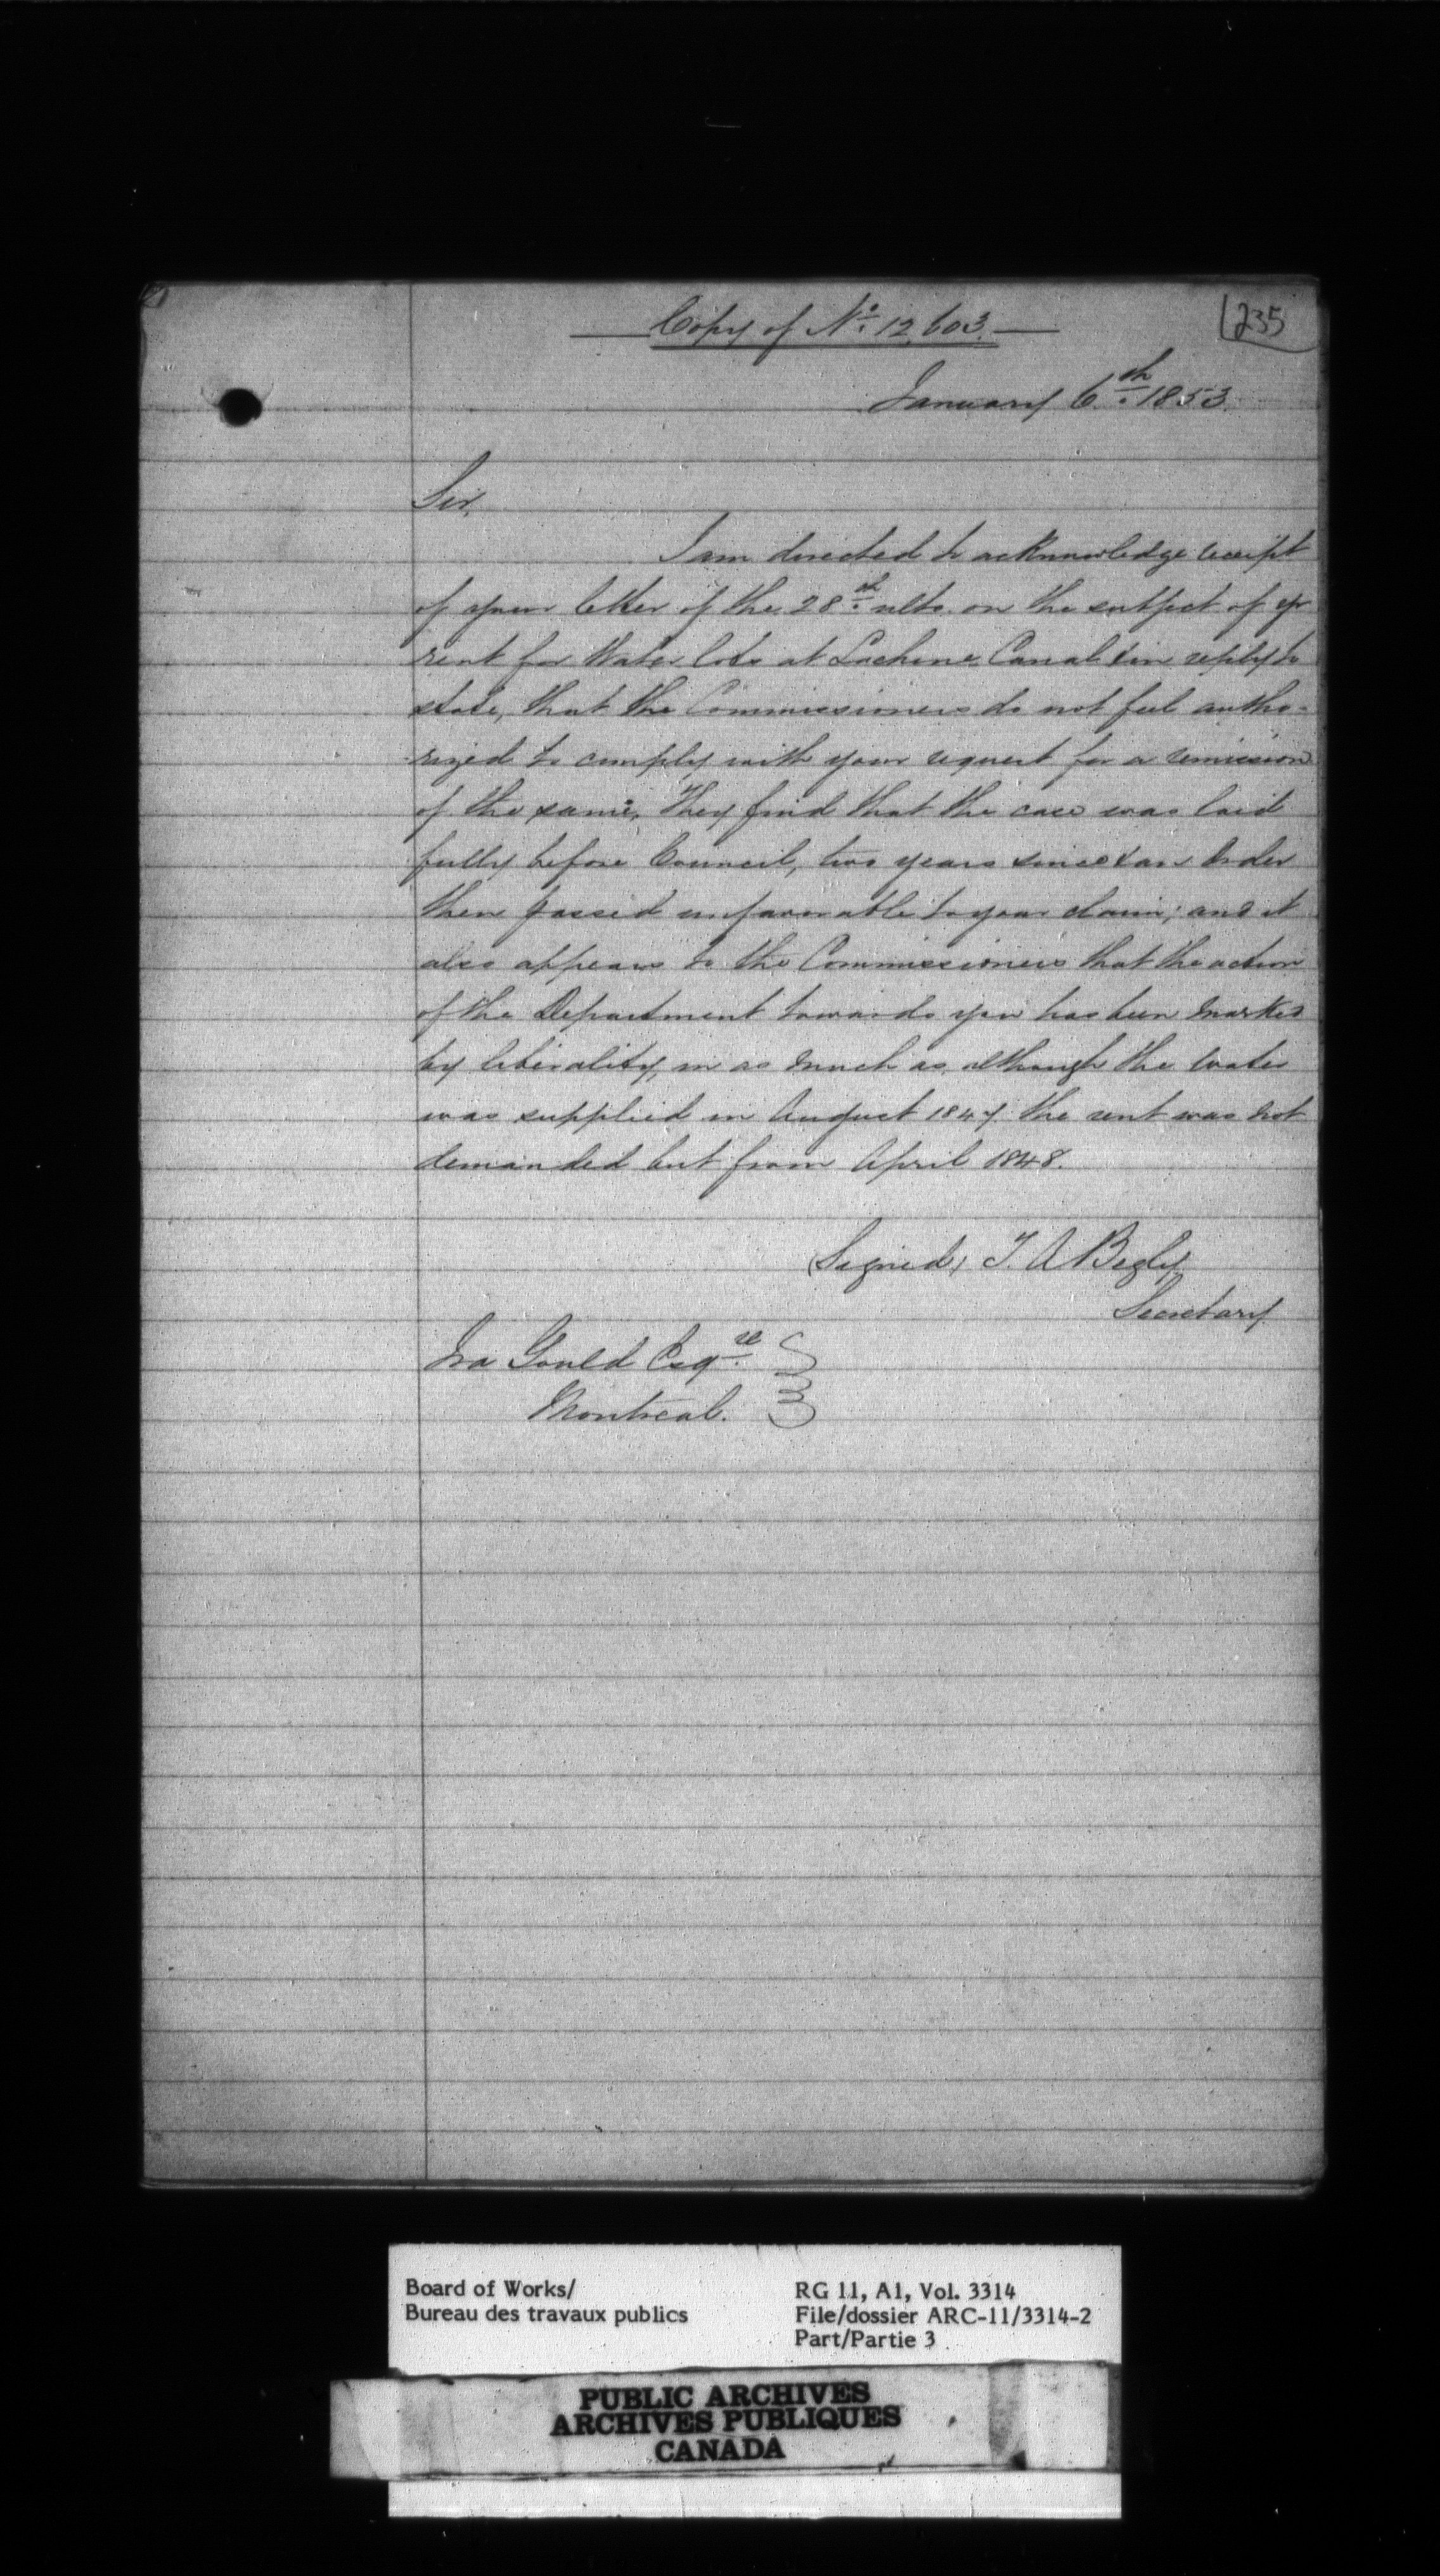 Copy of No. 12,603.
235
January 6th. 1853.
Sir,
I am directed to acknowledge receipt
of your letter of the 28th. ulto. on the subject of yr
rent for Water lots at Lachine Canal & in reply to
state, that the Commissioners do not feel autho-
rized to comply with your request for a remission
of the same, They find that the case was laid
fully before Council, two years since & an Order
then passed unfavorable to your claim; and it
also appears to the Commissioners that the action
of the Department towards you has been marked
by liberality, in as much as although the water
was supplied in August 1847. the rent was not
demanded but from April 1848.
(Signed) T. A Begly
Secretary
Ira Gould Esqre.
Montreal.
Board of Works/
Bureau des travaux publics
RG 11, A1, Vol. 3314
File/dossier ARC-11/3314-2
Part/Partie 3
PUBLIC ARCHIVES
ARCHIVES PUBLIQUES
CANADA